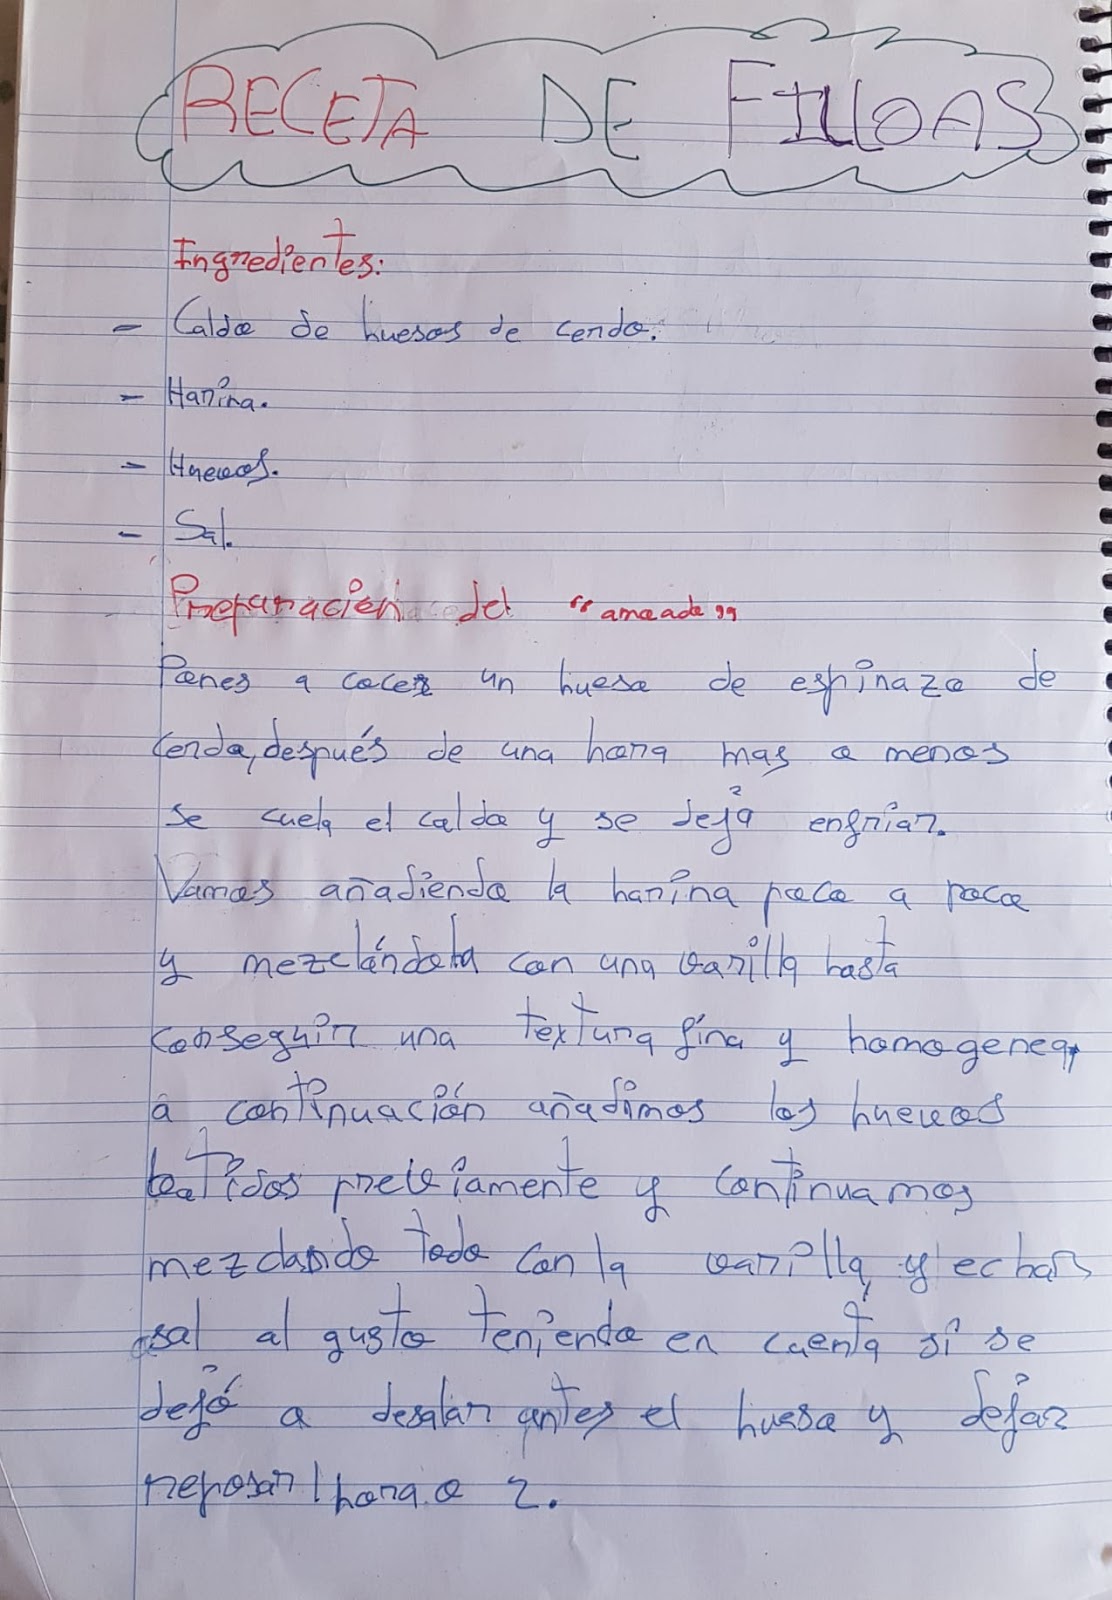 RECETA DE FILLOAS
Ingredientes:
- Caldo de huesos de cerdo.
- Harina.
- Huevos.
- Sal.
Preparación del "amoado"
Pones a cocer un hueso de espinazo de
cerdo, después de una hora mas o menos
se cuela el caldo y se deja enfriar.
Vamos añadiendo la harina poco a poco
y mezclándola con una varilla hasta
conseguir una textura fina y homogenea,
a continuación añadimos los huevos
batidos previamente y continuamos
mezclando todo con la varilla, y echar
sal al gusto teniendo en cuenta si se
dejó a desalar antes el hueso y dejar
reposar 1 hora o 2.